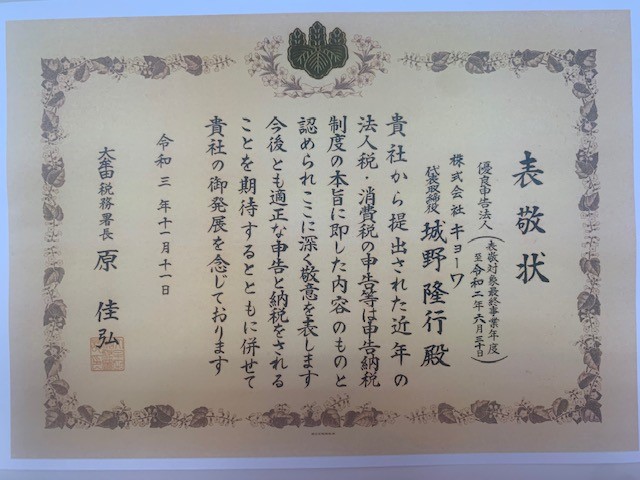 表敬状
優良申告法人(表敬対象最終事業年度 至令和二年六月三十日)
株式会社キョーワ
代表取締役 城野隆行殿
貴社から提出された近年の
法人税・消費税の申告等は申告納税
制度の本旨に即した内容のものと
認められここに深く敬意を表します
今後とも適正な申告と納税をされる
ことを期待するとともに併せて
貴社の御発展を念じております
令和三年十一月十一日
大牟田税務署長 原佳弘